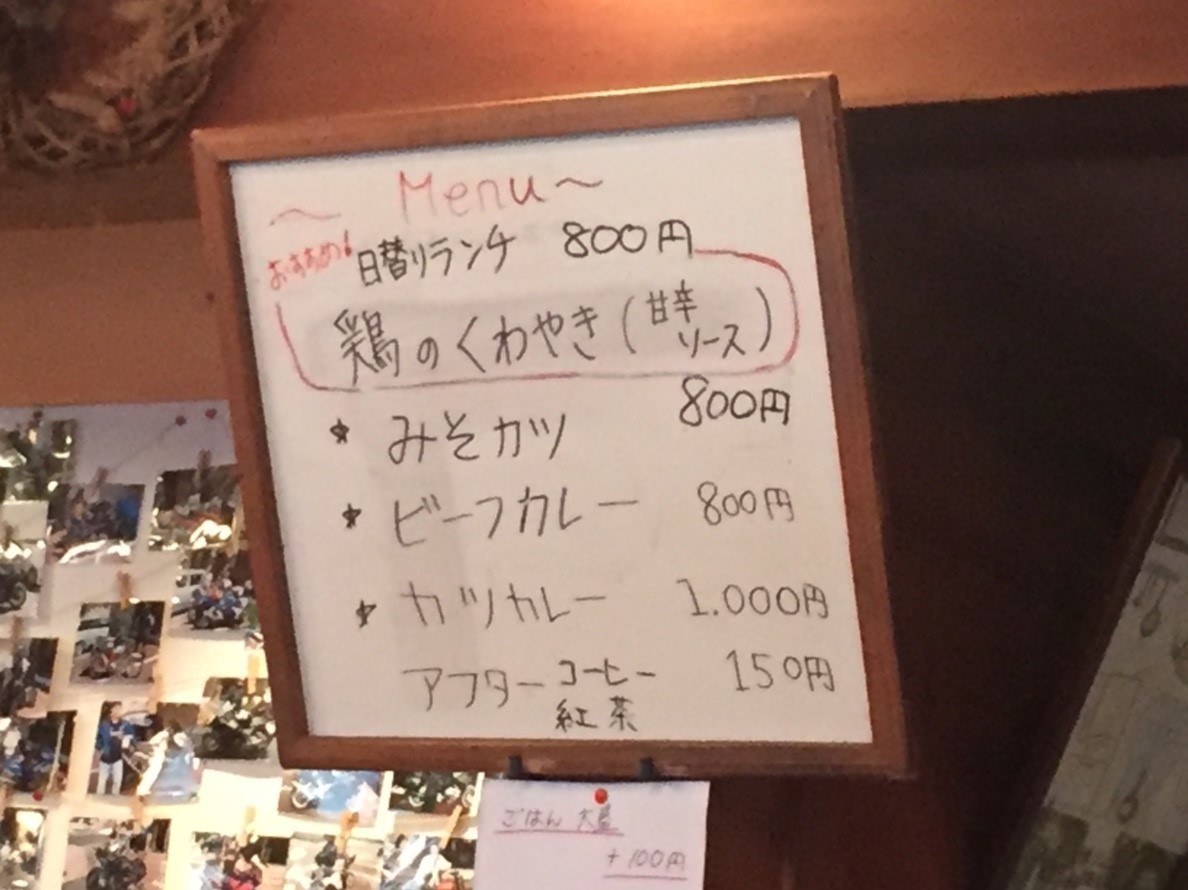 ~ Menu ~
おすすめ! 日替りランチ 800円
鶏のくわやき (甘辛ソース)
★ みそカツ 800円
★ ビーフカレー 800円
★ カツカレー 1.000円
アフターコーヒー 150円
紅茶
ごはん 大盛
+100円